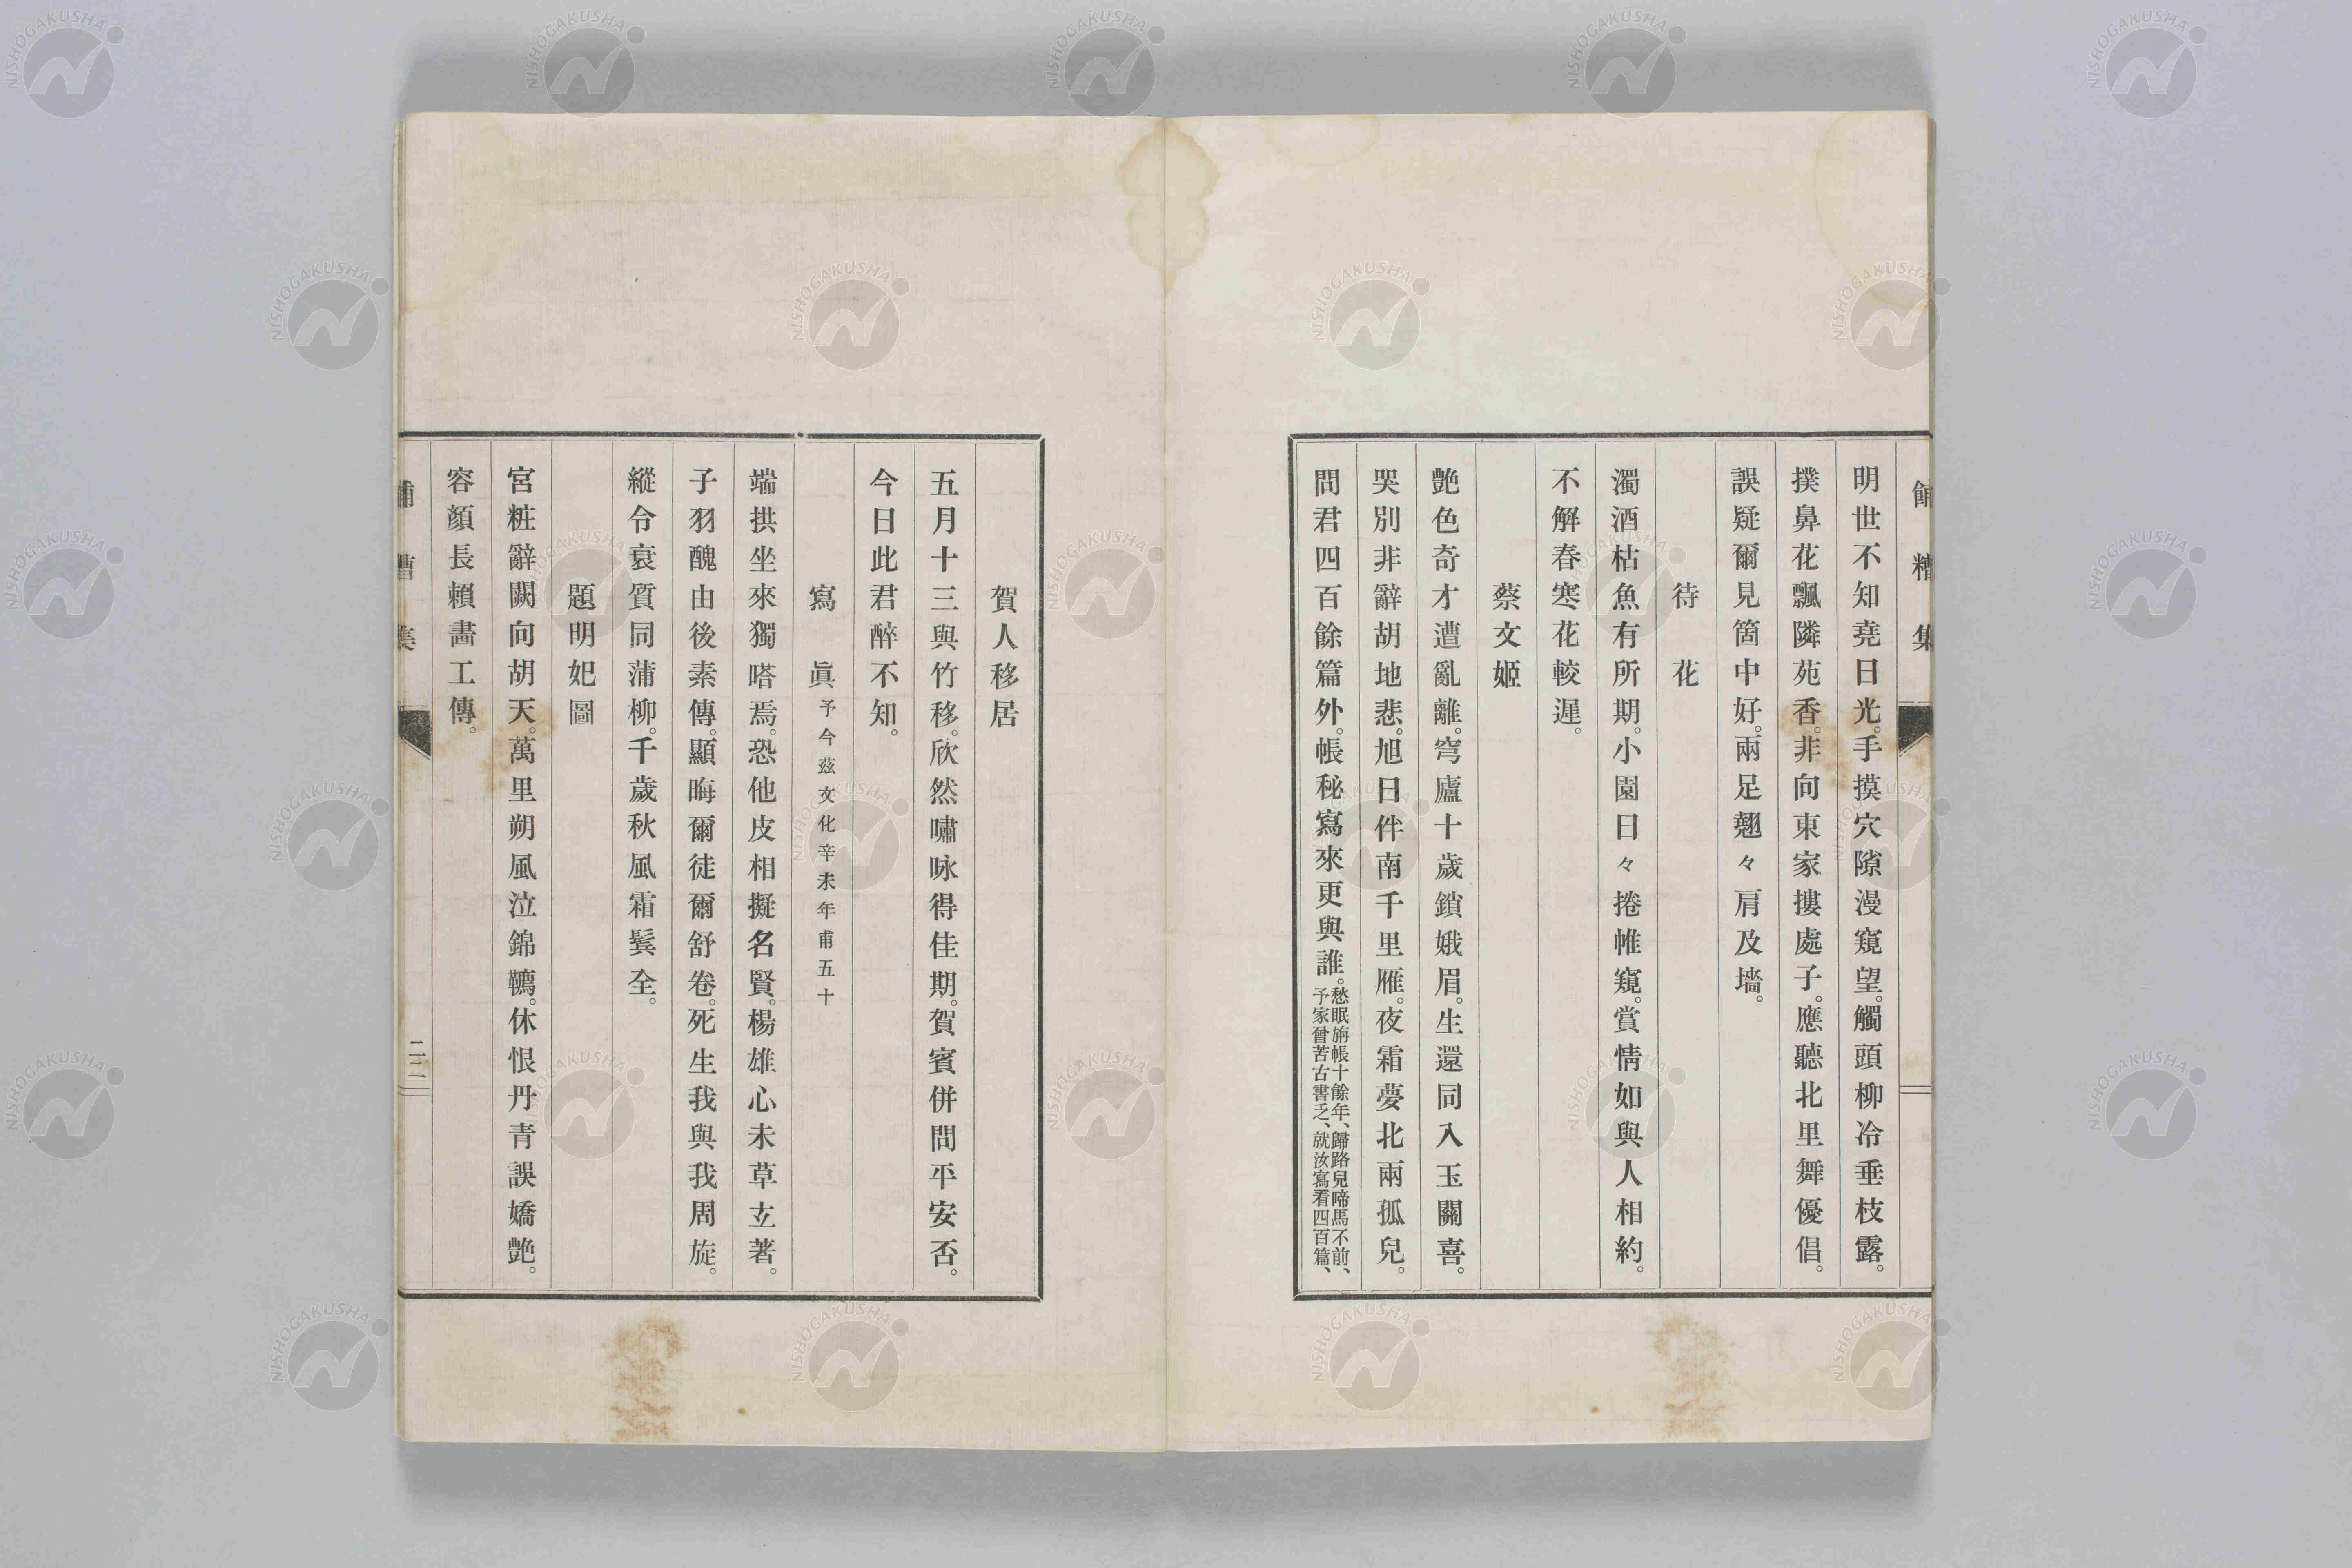 餔糟集
明世不知堯日光。手摸穴隙漫窺望。觸頭柳冷垂枝露。
撲鼻花飄隣苑香。非向東家摟處子。應聽北里舞優倡。
誤疑爾見箇中好。兩足翹々肩及墻。
待花
濁酒枯魚有所期。小園日々捲帷窺。賞情如與人相約。
不解春寒花較遲。
蔡文姬
艷色奇才遭亂離。穹廬十歲鎖娥眉。生還同入玉關喜。
哭別非辭胡地悲。旭日伴南千里雁。夜霜夢北兩孤兒。
問君四百餘篇外。帳秘寫來更與誰。
愁眠旃帳十餘年、歸路兒啼馬不前、
予家曾苦古書乏、就汝寫看四百篇、
賀人移居
五月十三與竹移。欣然嘯咏得佳期。賀賓併問平安否。
今日此君醉不知。
寫眞 予今茲文化辛未年甫五十
端拱坐來獨嗒焉。恐他皮相擬名賢。楊雄心未草玄著。
子羽醜由後素傳。顯晦爾徒爾舒卷。死生我與我周旋。
縱令衰質同蒲柳。千歲秋風霜鬂全。
題明妃圖
宮粧辭闕向胡天。萬里朔風泣錦韉。休恨丹青誤嬌艷。
容顏長賴畵工傳。
餔糟集
二二
NISHOGAKUSHA